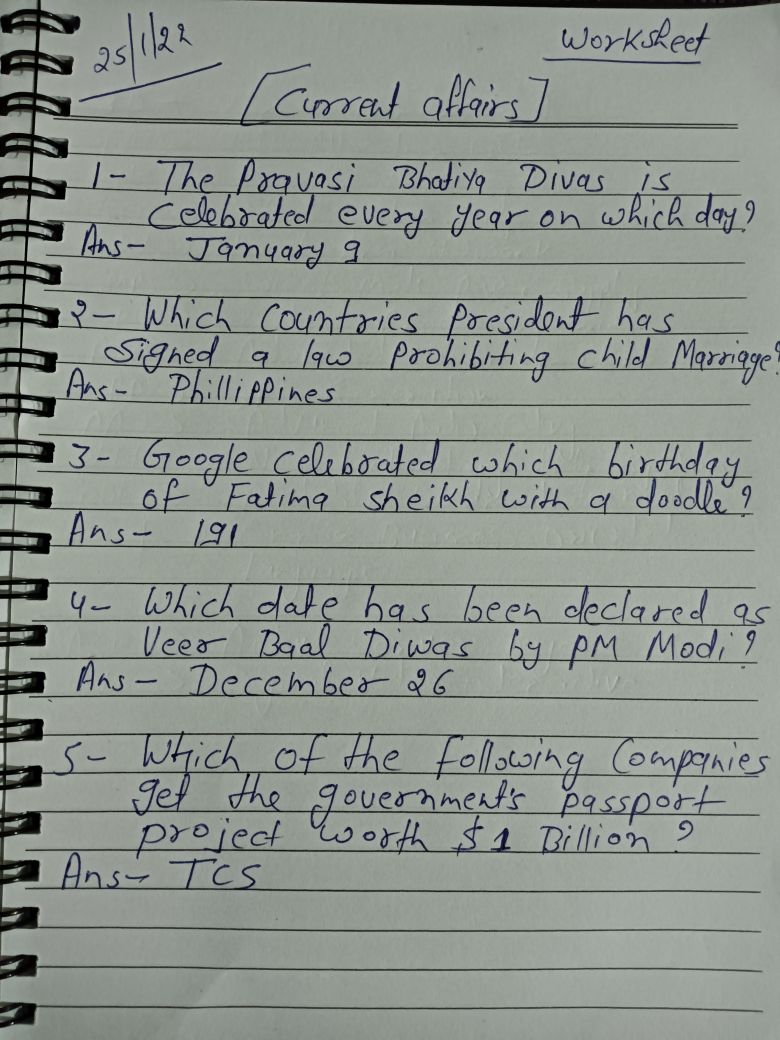 25/1/22
Worksheet
[Current affairs]
1- The Pravasi Bhatiya Divas is
Celebrated every year on which day?
Ans- January 9
2- Which Countries President has
Signed a law Prohibiting child Marriage?
Ans- Phillippines
3- Google celebrated which birthday
of Fatima sheikh with a doodle?
Ans- 191
4- Which date has been declared as
Veer Baal Diwas by PM Modi?
Ans- December 26
5- Which of the following Companies
get the government's passport
project worth $1 Billion?
Ans- TCS